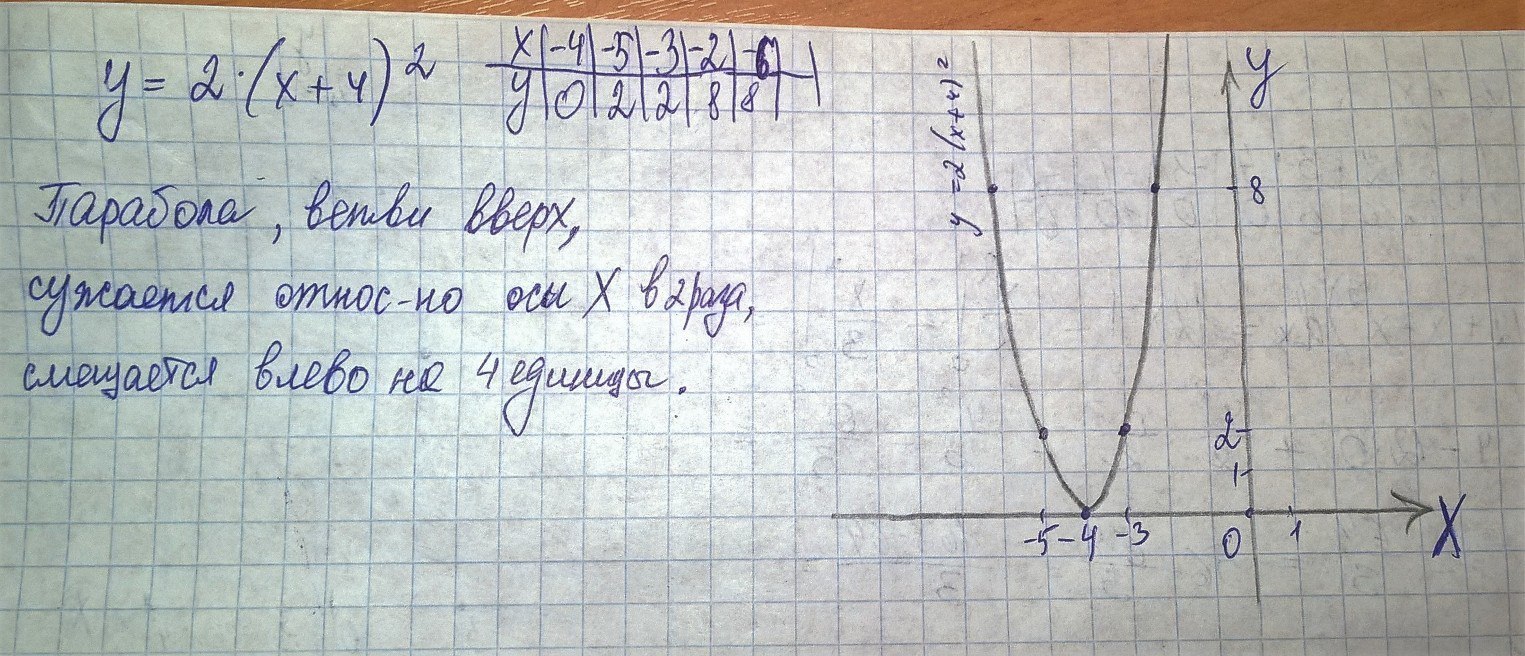 y = 2·(x+4)²
x | -4 | -5 | -3 | -2 | -6 |
y | 0 | 2 | 2 | 8 | 8 |
Парабола, ветви вверх,
сужается относ-но осы X в 2 раза,
смещается влево на 4 единицы.
y =2(x+4)²
y
8
2
1
-5 -4 -3 0 1 X